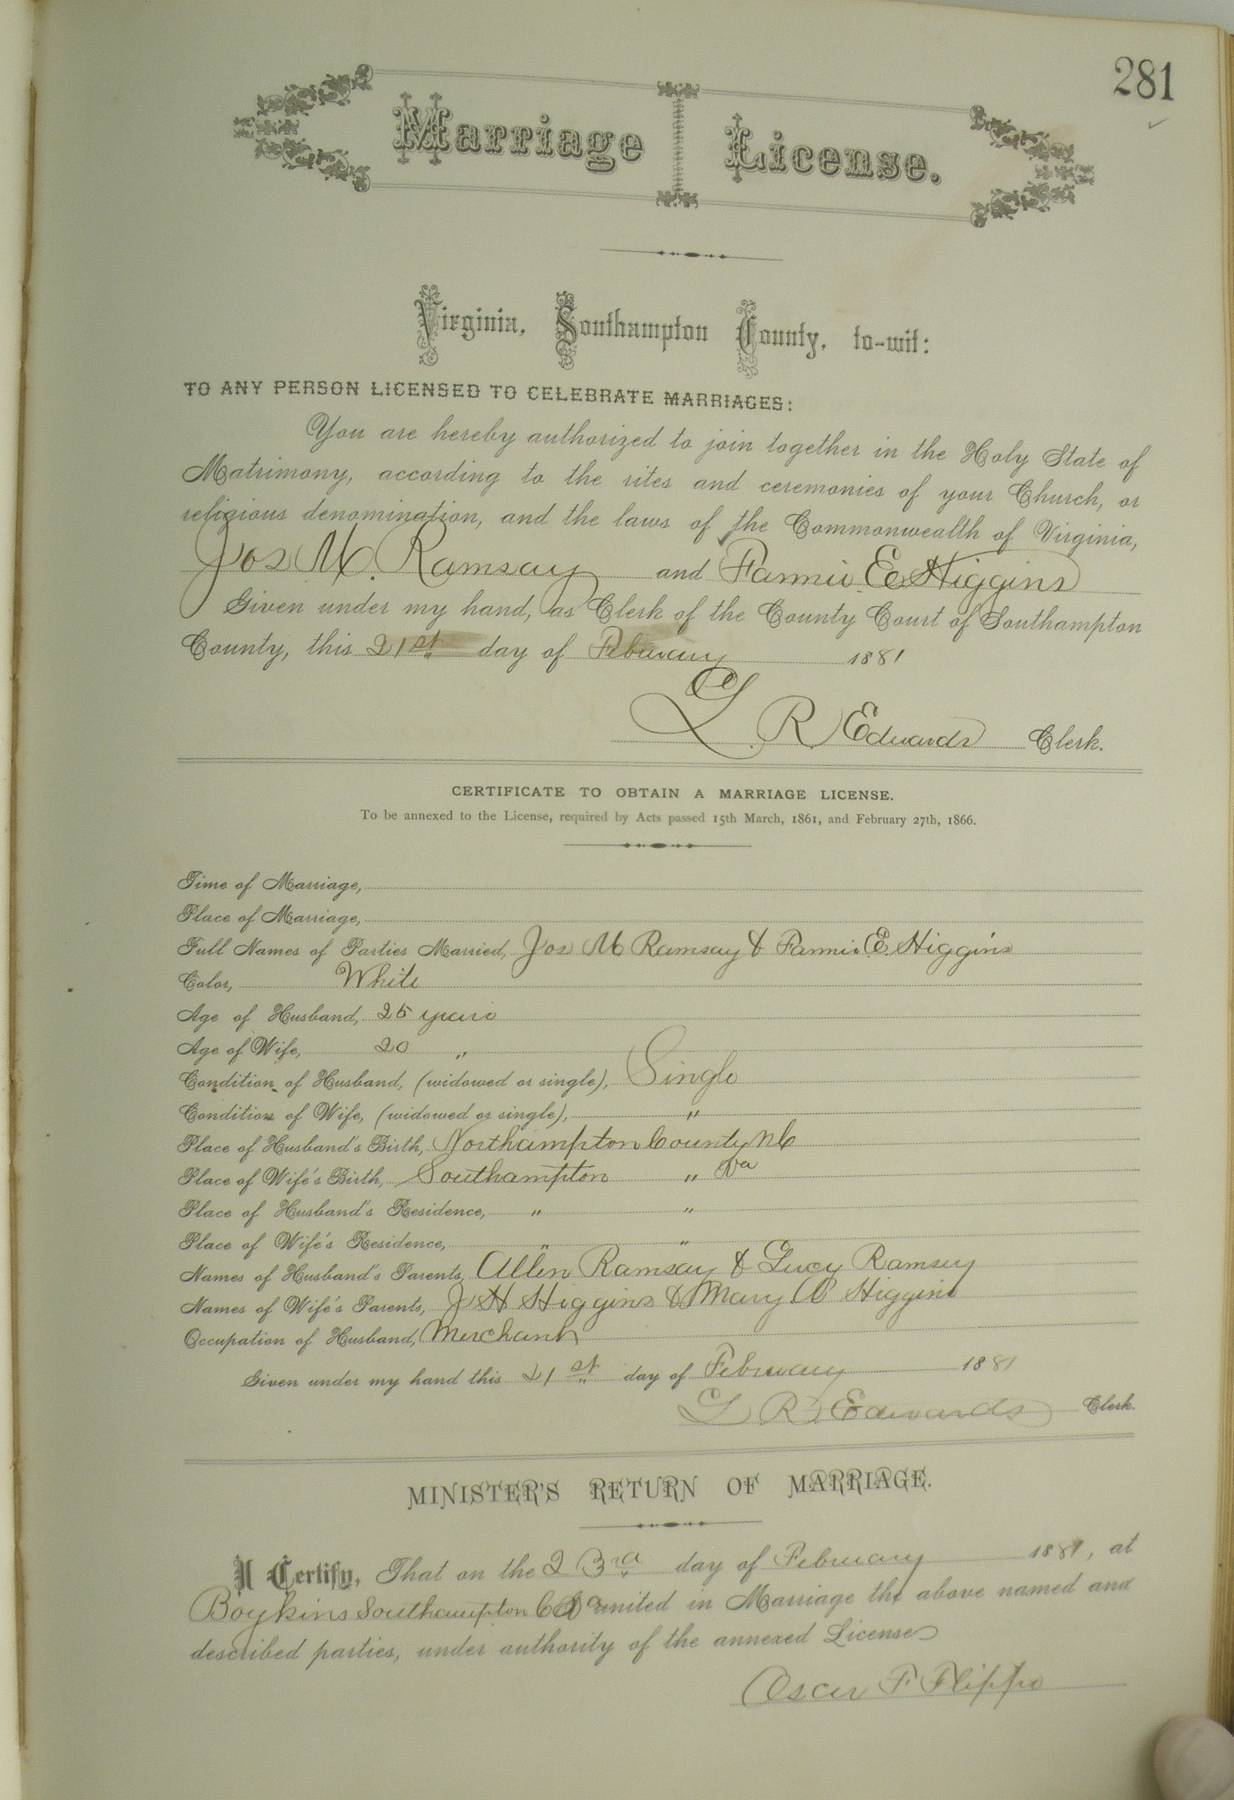 281
Marriage License.
Virginia, Southampton County, to-wit:
TO ANY PERSON LICENSED TO CELEBRATE MARRIAGES:
You are hereby authorized to join together in the Holy State of
Matrimony, according to the rites and ceremonies of your Church, or
religious denomination, and the laws of the Commonwealth of Virginia,
Jos M. Ramsay and Fannie E Higgins
Given under my hand, as Clerk of the County Court of Southampton
County, this 21st day of February 1881
L R Edwards Clerk.
CERTIFICATE TO OBTAIN A MARRIAGE LICENSE.
To be annexed to the License, required by Acts passed 15th March, 1861, and February 27th, 1866.
Time of Marriage,
Place of Marriage,
Full Names of Parties Married, Jos M Ramsay & Fannie E Higgins
Color, White
Age of Husband, 25 years
Age of Wife, 20 "
Condition of Husband, (widowed or single), Single
Condition of Wife, (widowed or single), "
Place of Husband's Birth, Northampton County NC
Place of Wife's Birth, Southampton " Va
Place of Husband's Residence, " "
Place of Wife's Residence, " "
Names of Husband's Parents, Allen Ramsay & Lucy Ramsey
Names of Wife's Parents, J H Higgins & Mary A Higgins
Occupation of Husband, Merchant
Given under my hand this 21st day of February 1881
L R Edwards Clerk.
MINISTER'S RETURN OF MARRIAGE.
I Certify, That on the 23rd day of February 1881, at
Boykins Southampton Co Va united in Marriage the above named and
described parties, under authority of the annexed License
Oscar F Flippo